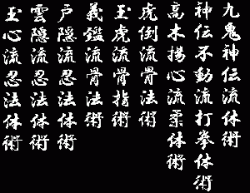 九鬼神伝流
神伝不動流打拳体術
高木揚心流柔体術
虎倒流骨法術
玉虎流骨指術
義鑑流骨法術
戸隠流忍法体術
雲隠流忍法体術
玉心流忍法体術